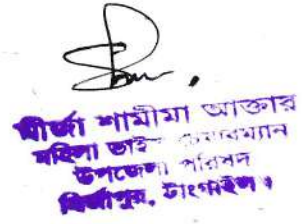 মীর্জা শামীমা আক্তার
মহিলা ভাইস চেয়ারম্যান
উপজেলা পরিষদ
মির্জাপুর, টাংগাইল।